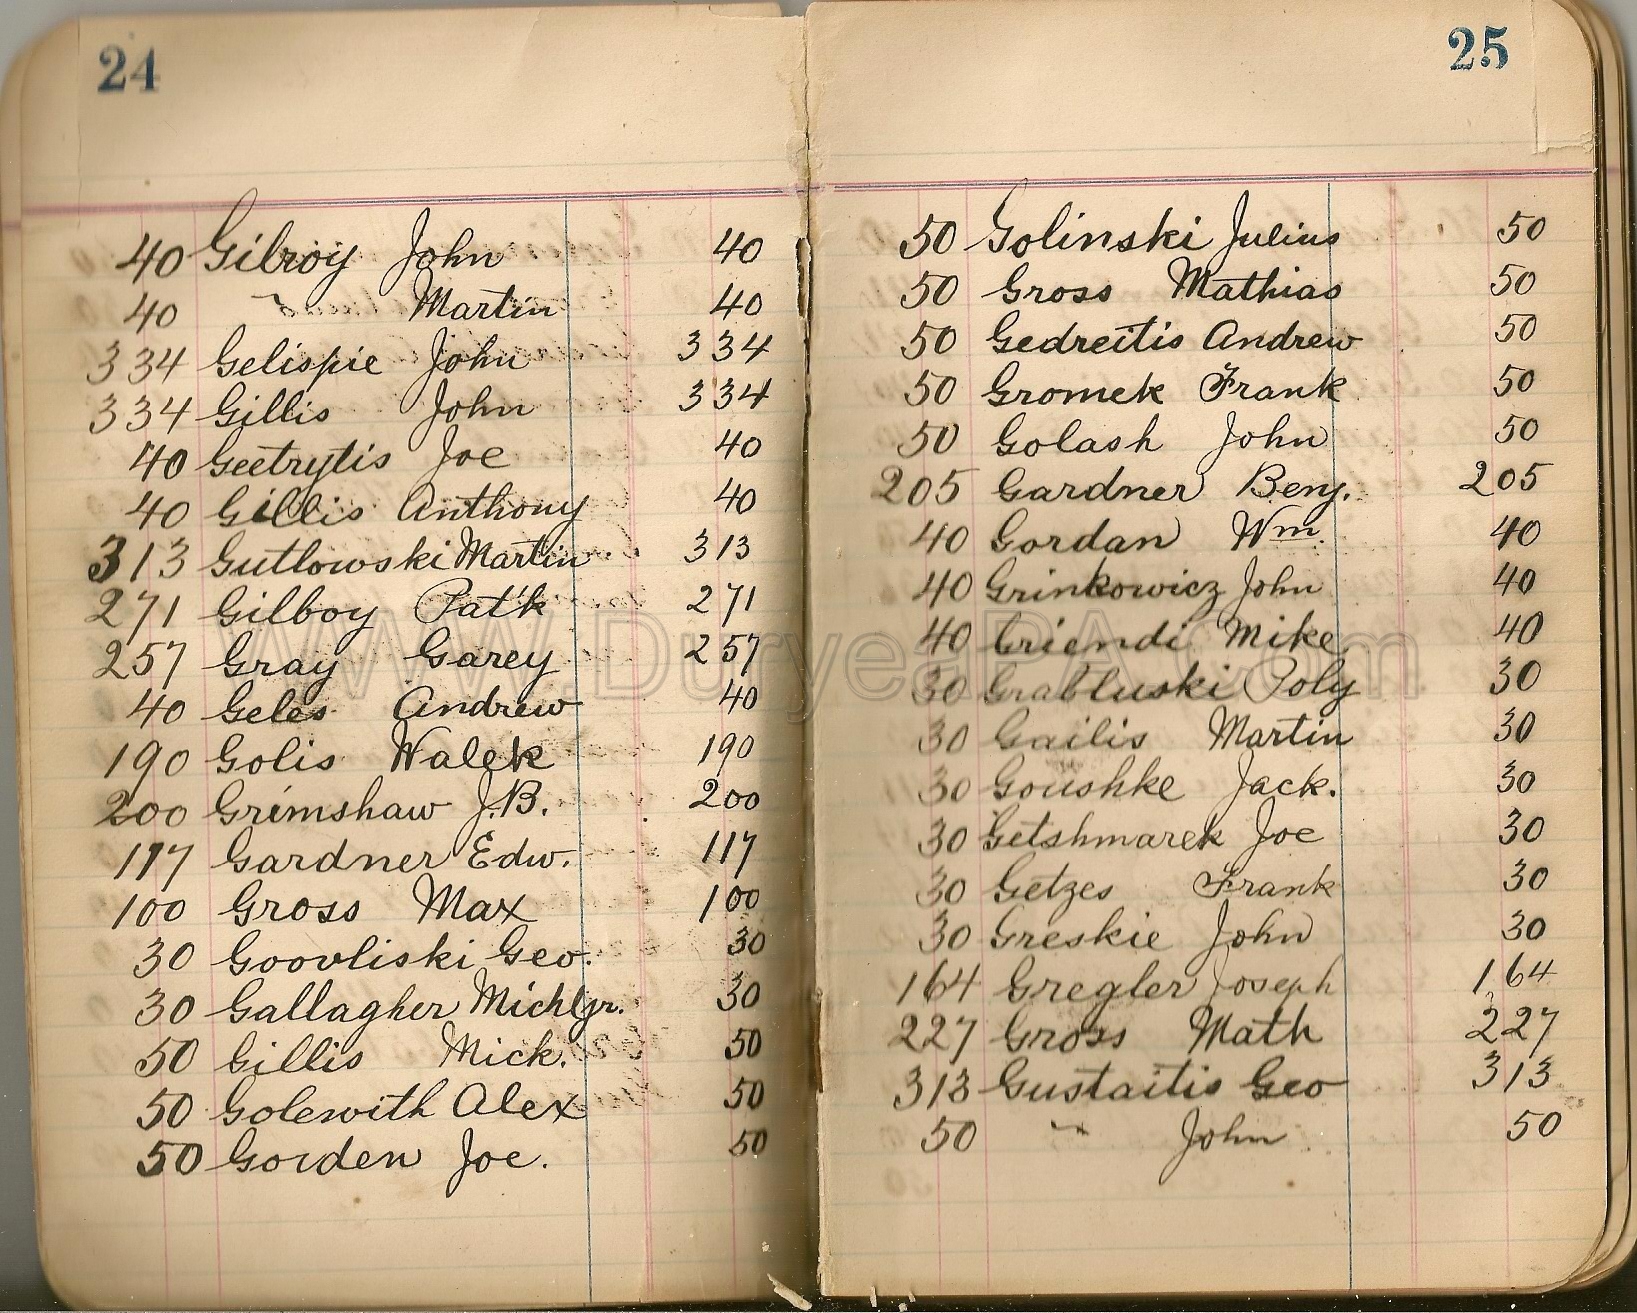 24
40 Gilroy John 40
40 " Martin 40
334 Gelispie John 334
334 Gillis John 334
40 Geetrytis Joe 40
40 Gillis Anthony 40
313 Gutlowski Martin 313
271 Gilboy Pat'k 271
257 Gray Garey 257
40 Geles Andrew 40
190 Golis Walek 190
200 Grimshaw J.B. 200
117 Gardner Edw. 117
100 Gross Max 100
30 Goovliski Geo. 30
30 Gallagher Michl jr. 30
50 Gillis Mick. 50
50 Golewith Alex 50
50 Gorden Joe. 50
25
50 Golinski Julius 50
50 Gross Mathias 50
50 Gedreitis Andrew 50
50 Gromek Frank 50
50 Golash John 50
205 Gardner Benj. 205
40 Gordan Wm. 40
40 Grinkowicz John 40
40 Griendi Mike 40
30 Grabluski Poly 30
30 Gailis Martin 30
30 Goushke Jack. 30
30 Getshmarek Joe 30
30 Getzes Frank 30
30 Greskie John 30
164 Gregler Joseph 164
227 Gross Math 227
313 Gustaitis Geo 313
50 " John 50
www.DuryeaPA.com